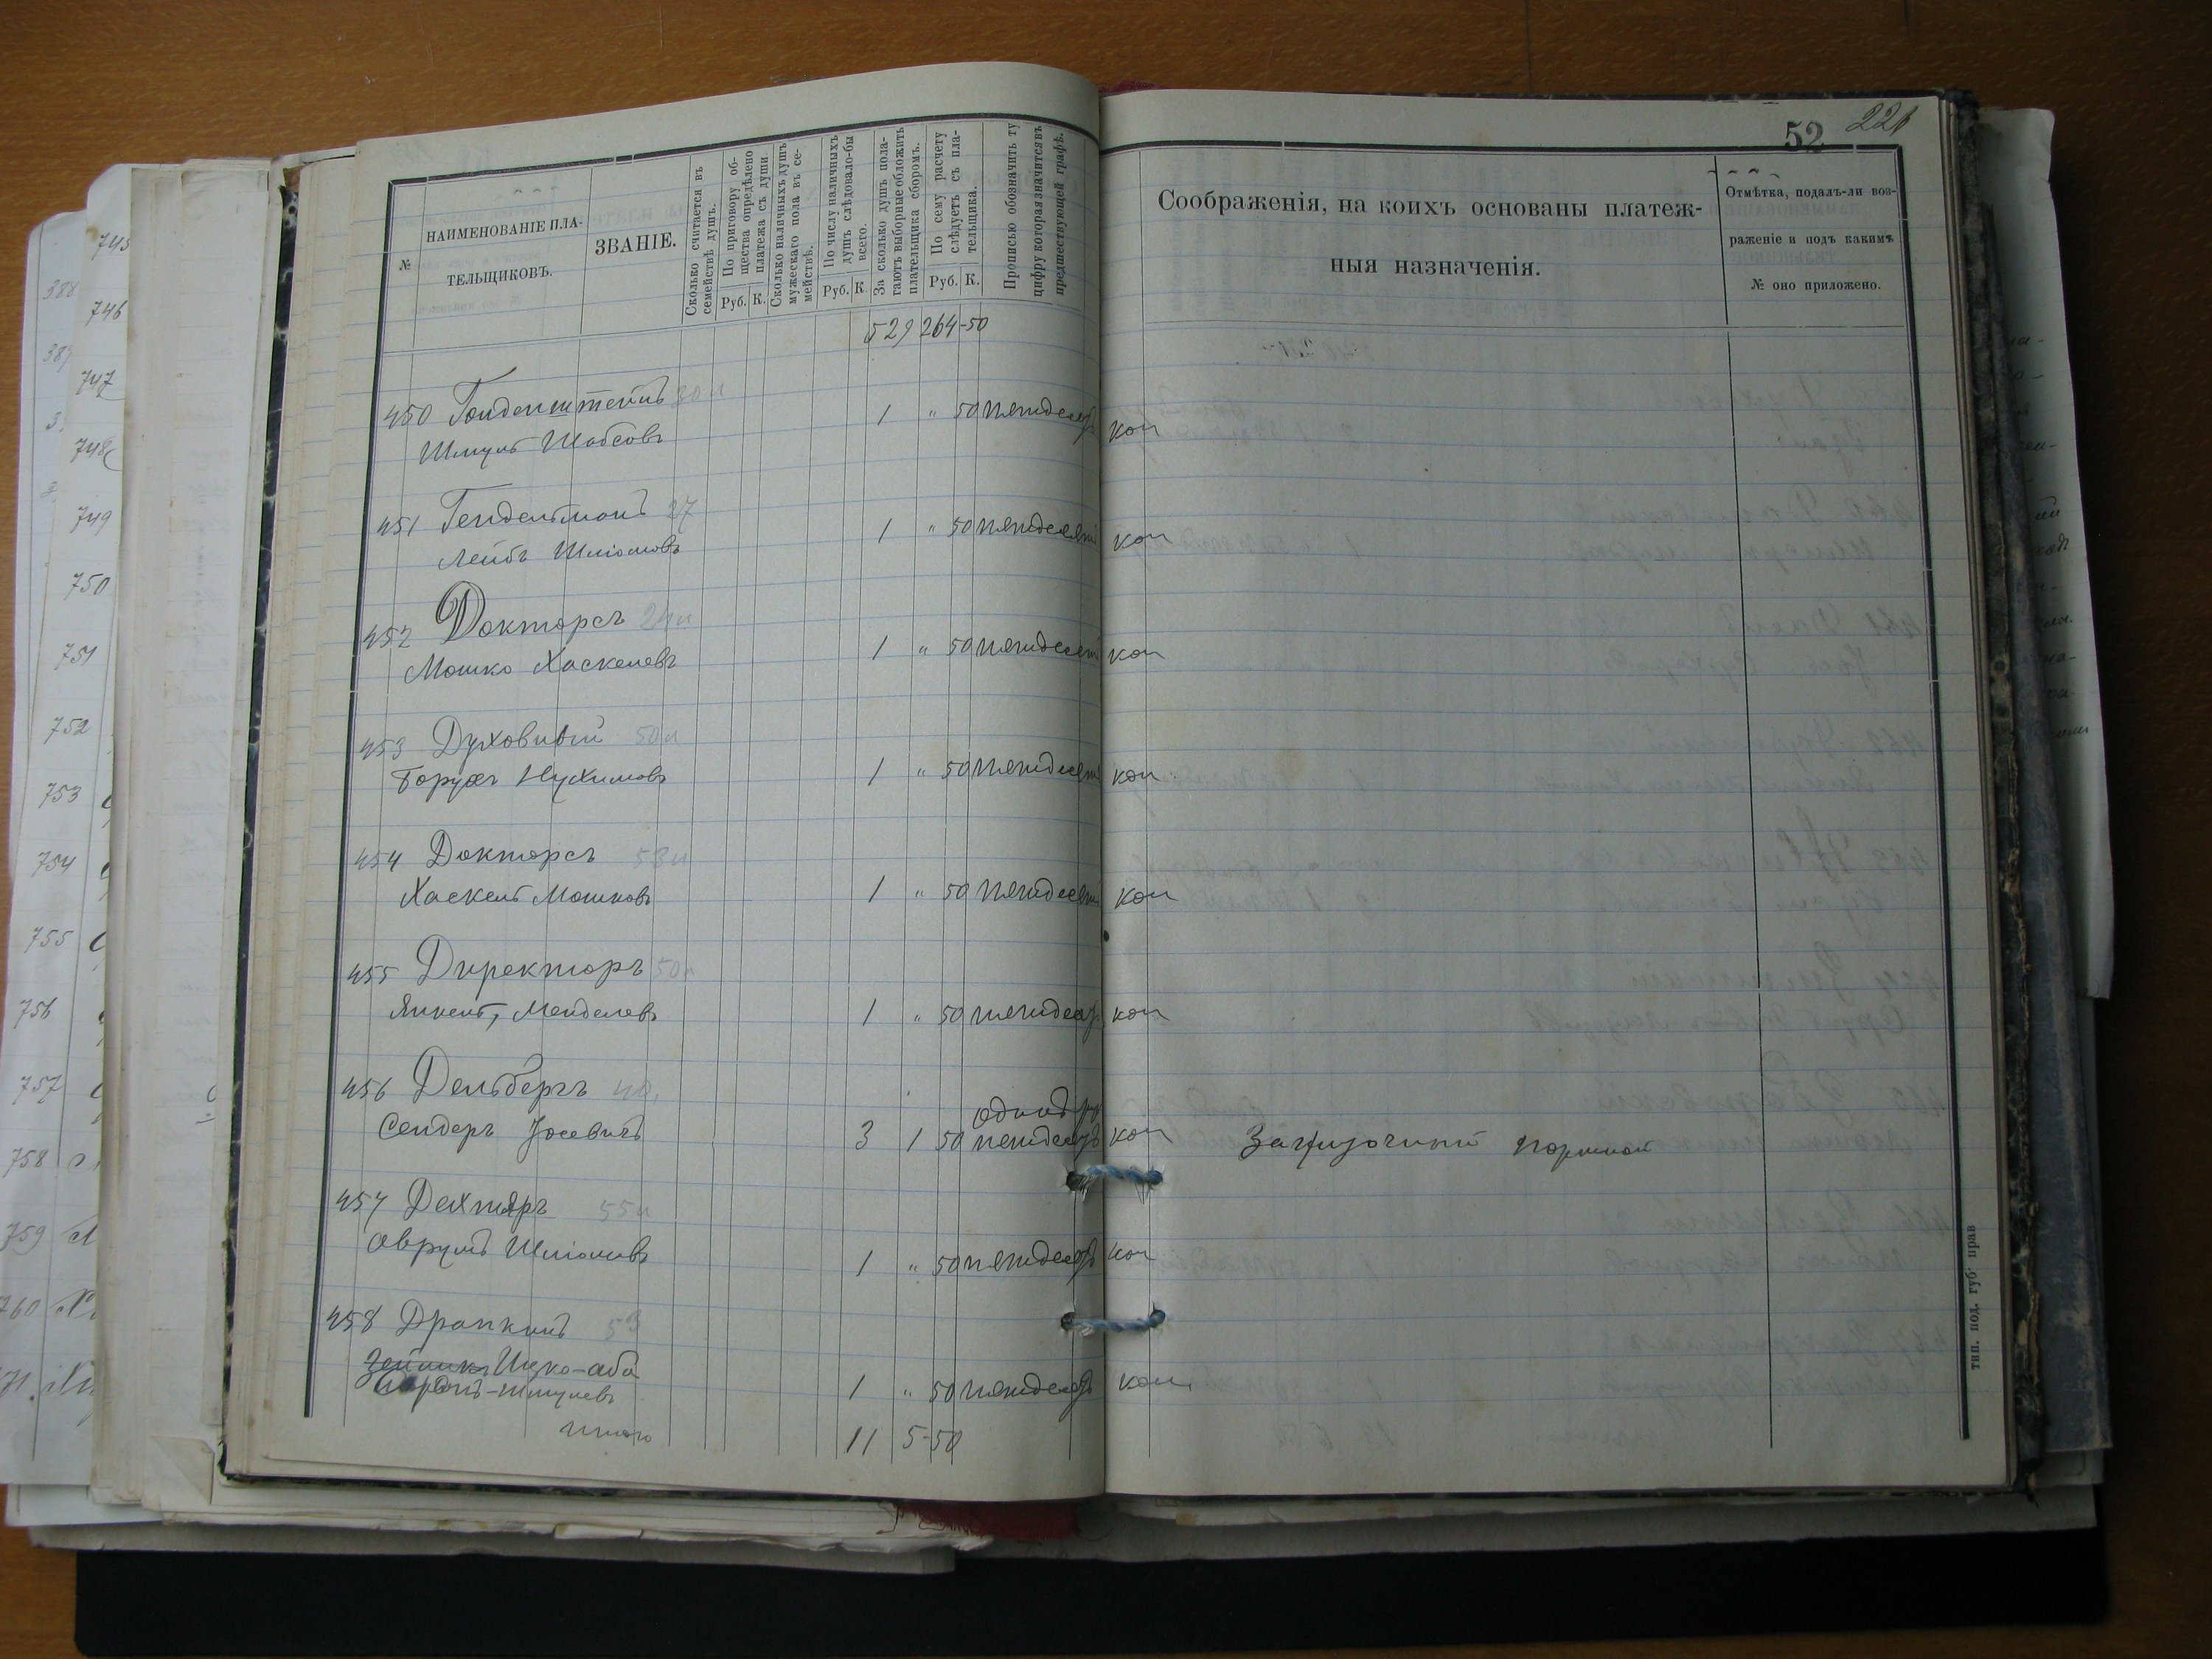 52 226
№
НАИМЕНОВАНІЕ ПЛА-
ТЕЛЬЩИКОВЪ.
ЗВАНІЕ.
Сколько считается въ
семействѣ душъ.
По приговору об-
щества опредѣлено
платежа съ души
Руб. К.
Сколько наличныхъ душъ
мужескаго пола въ се-
мействѣ.
По числу наличныхъ
душъ слѣдовало-бы
всего.
Руб. К.
За сколько душъ пола-
гаютъ выборные обложить
плательщика сборомъ.
По сему расчету
слѣдуетъ съ пла-
тельщика.
Руб. К.
Прописью обозначить ту
цифру которая значится въ
предшествующей графѣ.
Соображенія, на коихъ основаны платеж-
ныя назначенія.
Отмѣтка, подалъ-ли воз-
раженіе и подъ какимъ
№ оно приложено.
529 264-50
450 Гольденштейнъ 30 л
Шмуль Шабсовъ 1 " 50 пятьдесятъ коп
451 Гендельманъ 27
Лейбъ Шліомовъ 1 " 50 пятьдесятъ коп
452 Докторсъ 24 л
Мошко Хаскелевъ 1 " 50 пятьдесятъ коп
453 Духовный 50 л
Борухъ Нухимовъ 1 " 50 пятьдесятъ коп
454 Докторсъ 58 л
Хаскель Мошковъ 1 " 50 пятьдесятъ коп
455 Директоръ 50 л
Янкель, Менделевъ 1 " 50 пятьдесятъ коп
456 Дельбергъ 40.
одинъ ру
Сендеръ Іосевичъ 3 1 50 пятьдесятъ коп портной
457 Дехтяръ 55 л
Аврумъ Шліомовъ 1 " 50 пятьдесятъ коп
458 Драпкинъ 53
Ицко-аба
Шмулевъ 1 " 50 пятьдесятъ коп
итого 11 5-50
тип. под. губ. прав
745
746
747
748
749
750
751
752
753
754
755
756
757
758
759
760
388